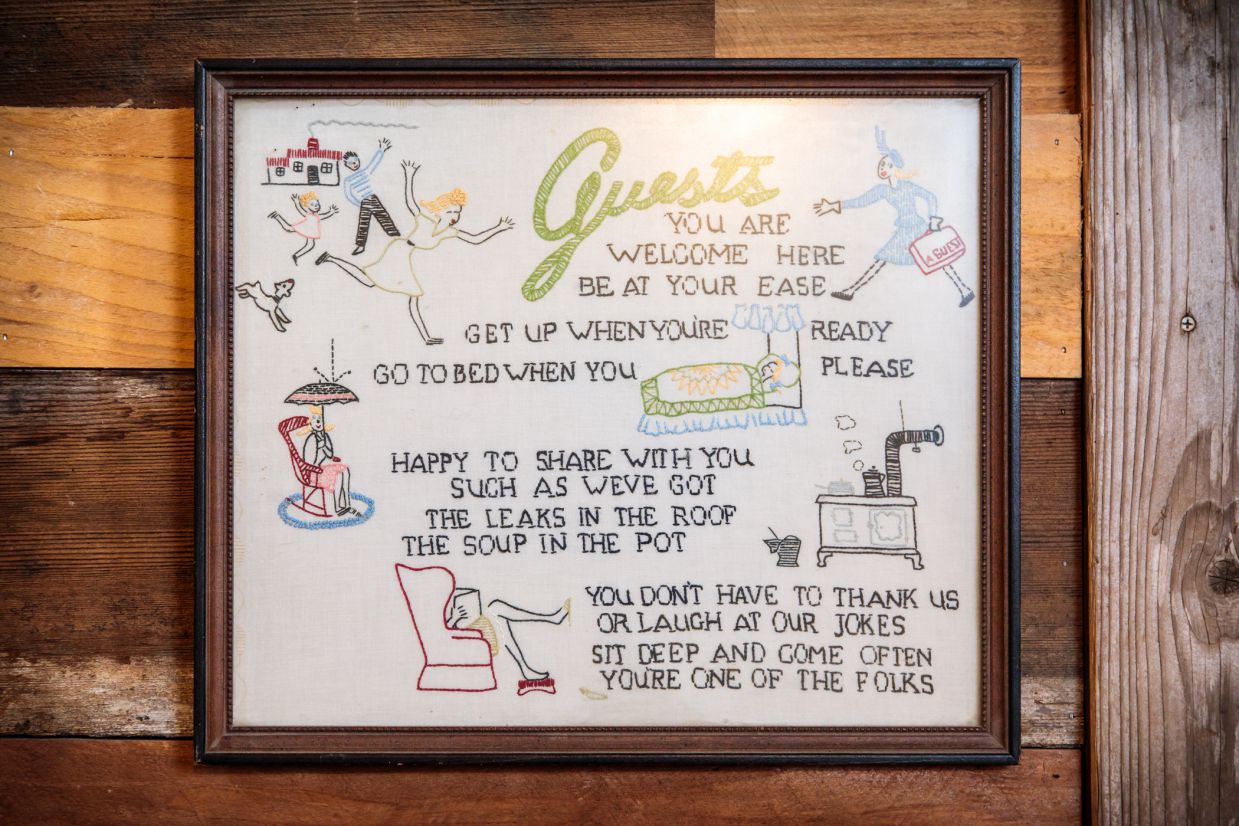 Guests
YOU ARE
WELCOME HERE
BE AT YOUR EASE
A GUEST
GET UP WHEN YOU'RE READY
GO TO BED WHEN YOU PLEASE
HAPPY TO SHARE WITH YOU
SUCH AS WE'VE GOT
THE LEAKS IN THE ROOF
THE SOUP IN THE POT
YOU DON'T HAVE TO THANK US
OR LAUGH AT OUR JOKES
SIT DEEP AND COME OFTEN
YOU'RE ONE OF THE FOLKS